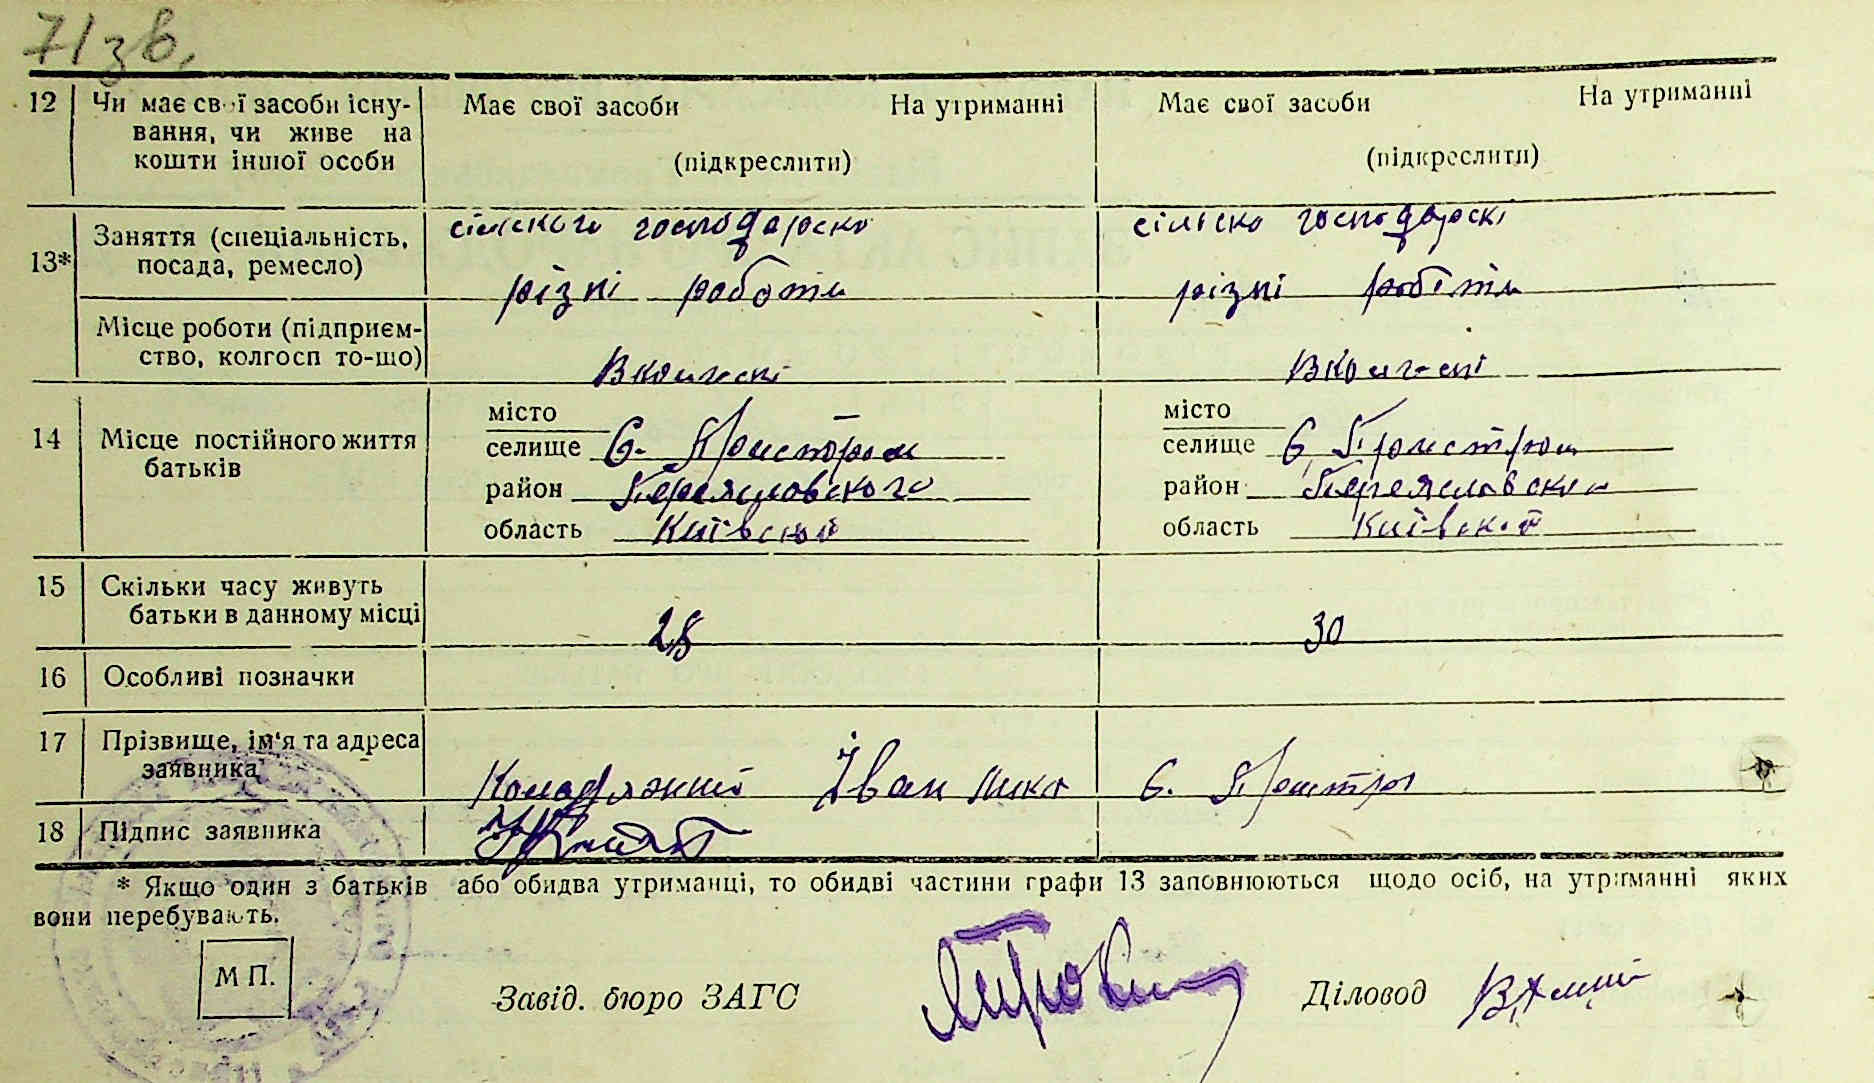 71зв.
12 Чи має свої засоби існу- Має свої засоби На утриманні Має свої засоби На утриманні
вання, чи живе на
кошти іншої особи (підкреслити) (підкреслити)
13* Заняття (спеціальність, сільского господарско сільско господарскі
посада, ремесло) різні роботи різні роботи
Місце роботи (підприєм-
ство, колгосп то-що) В колгоспі В колгоспі
14 Місце постійного життя місто — місто
батьків селище С. селище С.
район Переяславского район Переяславско
область Київской область Київской
15 Скільки часу живуть
батьки в данному місці 28 30
16 Особливі позначки
17 Прізвище, ім'я та адреса
заявника Колодяжний Іван Мико С.
18 Підпис заявника
* Якщо один з батьків або обидва утриманці, то обидві частини графи 13 заповнюються щодо осіб, на утриманні яких
вони перебувають.
М П.
Завід. бюро ЗАГС Діловод